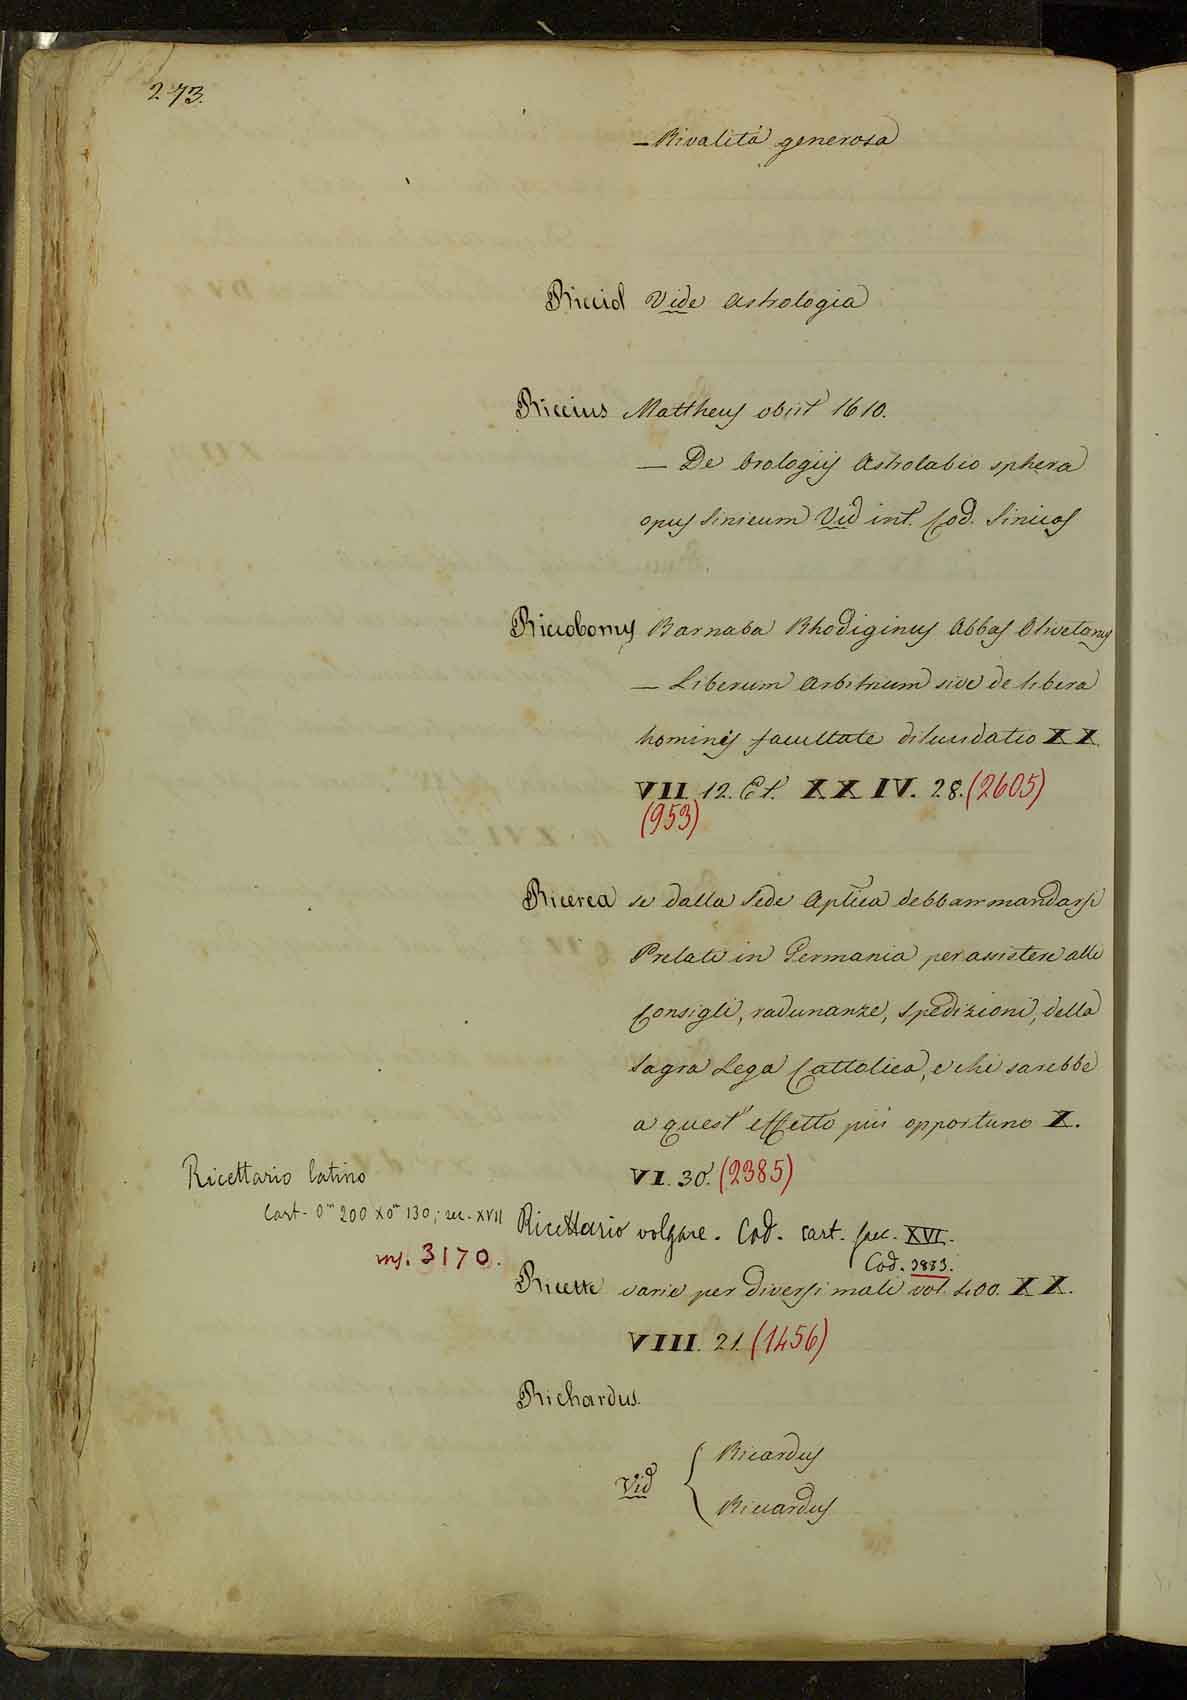 273.
– Rivalità generosa
Ricciol Vide Astrologia
Riccius Mattheus obiit 1610.
– De Orologiis Astrolabio sphera
opus sinicum Vid int. Cod. Sinicos
Riccobonus Barnaba Rhodiginus Abbas Olivetanus
– Liberum Arbitrium sive de libera
hominis facultate dilucidatio XX
VII. 12. Et. XXIV. 28. (2605)
(953)
Ricerca se dalla Sede Aplica debban mandarsi
Prelati in Germania per assistere alli
Consigli, radunanze, spedizioni, della
Sagra Lega Cattolica, e chi sarebbe
a quest' effetto più opportuno X.
VI. 30. (2385)
Ricettario latino
Cart. 0m 200 X 0m 130; sec. XVII
ms. 3170.
Ricettario volgare. Cod. cart. saec. XVI.
Cod. 3833.
Ricette varie per diversi mali vol. 400. XX.
VIII. 21. (1456)
Richardus.
Vid { Ricardus
Riccardus